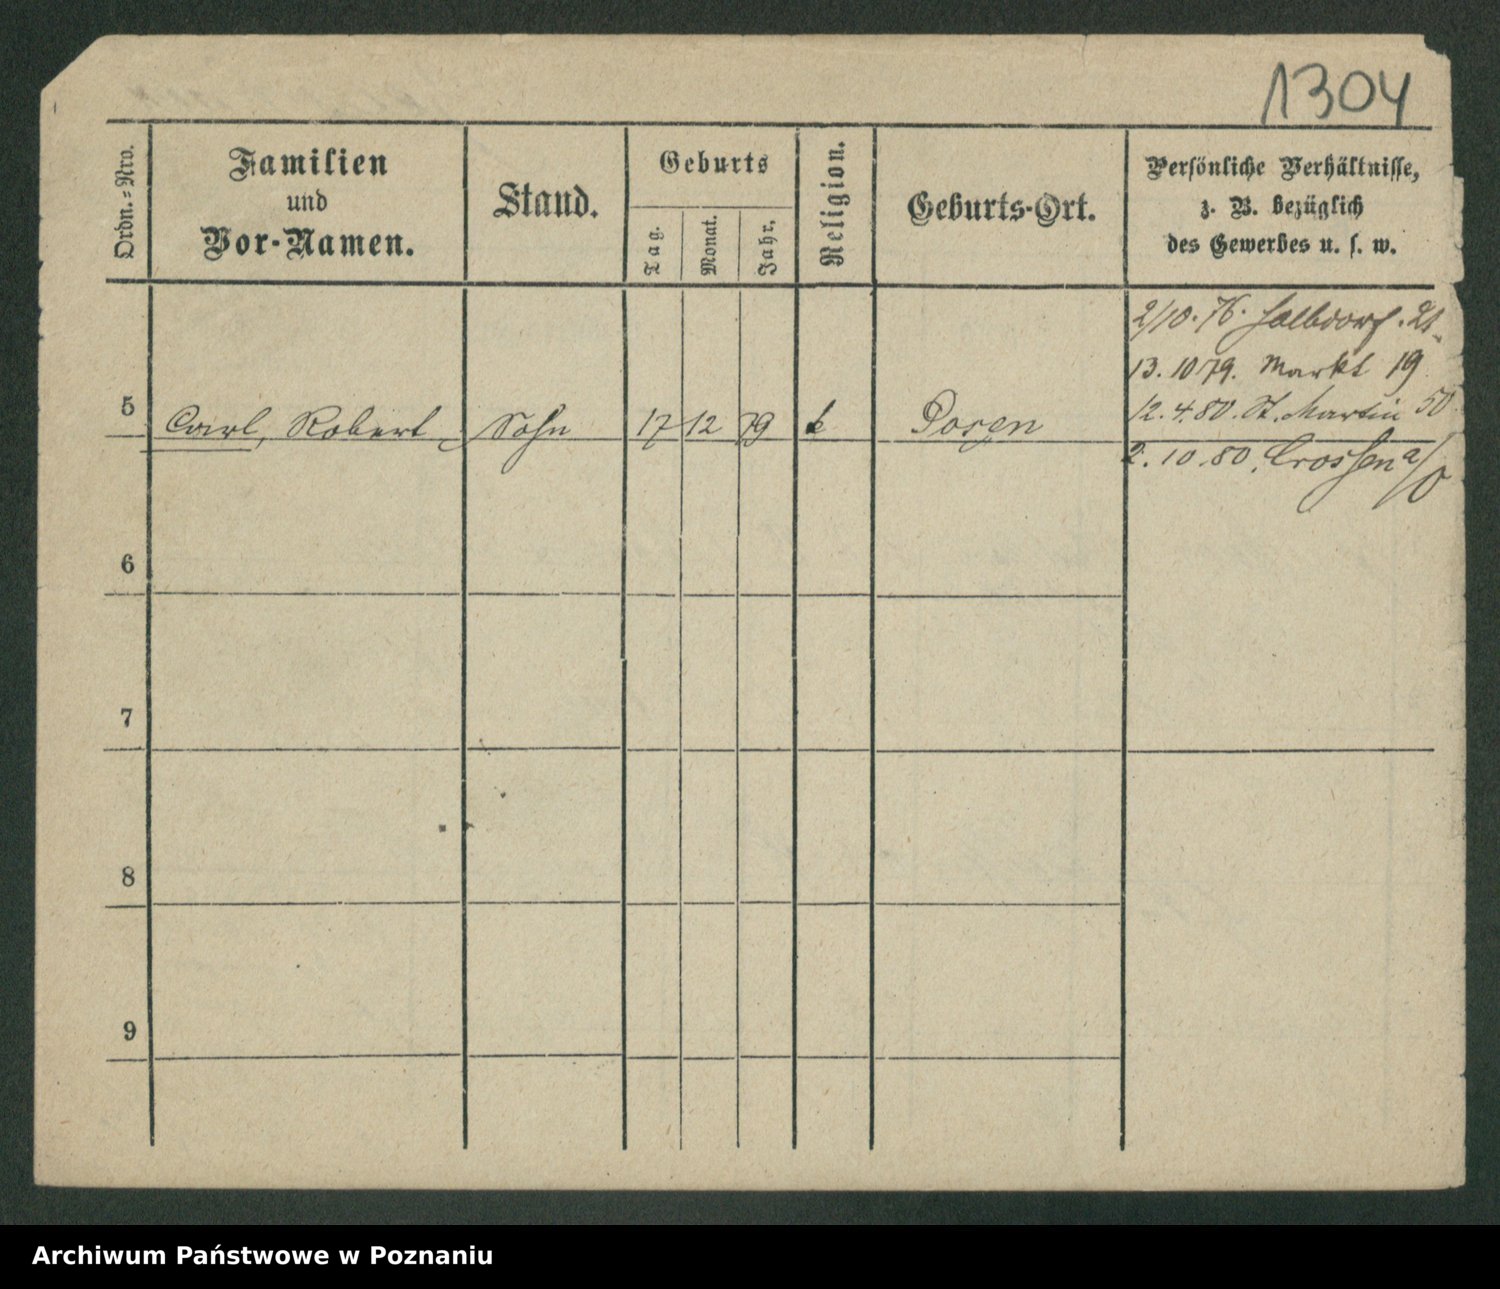 1304
Ordn.-Nro.
Familien
und
Vor-Namen.
Stand.
Geburts
Tag.
Monat.
Jahr.
Religion.
Geburts-Ort.
Persönliche Verhältnisse,
z. B. bezüglich
des Gewerbes u. s. w.
2/10. 76. Halbdorf. 21.
13. 10 79. Markt 19
12. 4. 80. St. Martin 50
5 Carl, Robert Sohn 17 12 79 k Posen
2. 10. 80. Crossen a/O
6
7
8
9
Archiwum Państwowe w Poznaniu